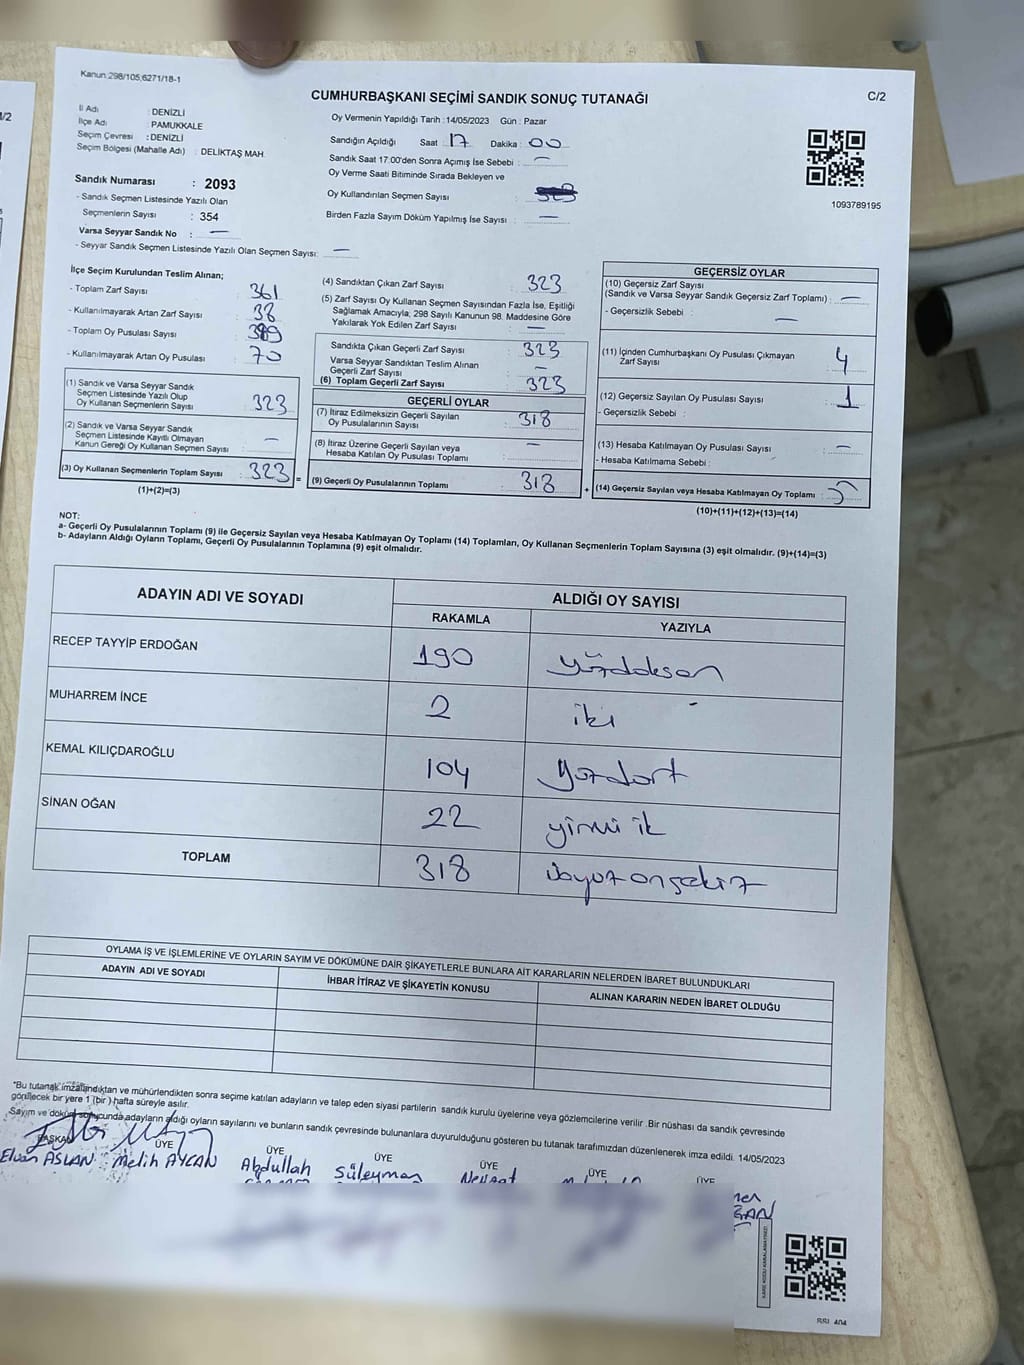 Kanun:298/105,6271/18-1
CUMHURBAŞKANI SEÇİMİ SANDIK SONUÇ TUTANAĞI
C/2
İl Adı : DENİZLİ
İlçe Adı : PAMUKKALE
Seçim Çevresi : DENİZLİ
Seçim Bölgesi (Mahalle Adı) : DELİKTAŞ MAH.
Oy Vermenin Yapıldığı Tarih : 14/05/2023 Gün : Pazar
Sandığın Açıldığı Saat 17 Dakika : 00
Sandık Saat 17:00'den Sonra Açımış İse Sebebi : —
Oy Verme Saati Bitiminde Sırada Bekleyen ve
Oy Kullandırılan Seçmen Sayısı :
Birden Fazla Sayım Döküm Yapılmış İse Sayısı : —
1093789195
Sandık Numarası : 2093
- Sandık Seçmen Listesinde Yazılı Olan
Seçmenlerin Sayısı : 354
Varsa Seyyar Sandık No : —
- Seyyar Sandık Seçmen Listesinde Yazılı Olan Seçmen Sayısı: —
İlçe Seçim Kurulundan Teslim Alınan;
- Toplam Zarf Sayısı : 361
- Kullanılmayarak Artan Zarf Sayısı : 38
- Toplam Oy Pusulası Sayısı :
- Kullanılmayarak Artan Oy Pusulası : 70
(1) Sandık ve Varsa Seyyar Sandık
Seçmen Listesinde Yazılı Olup
Oy Kullanan Seçmenlerin Sayısı : 323
(2) Sandık ve Varsa Seyyar Sandık
Seçmen Listesinde Kayıtlı Olmayan
Kanun Gereği Oy Kullanan Seçmen Sayısı : —
(3) Oy Kullanan Seçmenlerin Toplam Sayısı : 323
(1)+(2)=(3)
(4) Sandıktan Çıkan Zarf Sayısı : 323
(5) Zarf Sayısı Oy Kullanan Seçmen Sayısından Fazla İse, Eşitliği
Sağlamak Amacıyla, 298 Sayılı Kanunun 98. Maddesine Göre
Yakılarak Yok Edilen Zarf Sayısı : —
Sandıkta Çıkan Geçerli Zarf Sayısı : 323
Varsa Seyyar Sandıktan Teslim Alınan
Geçerli Zarf Sayısı : —
(6) Toplam Geçerli Zarf Sayısı : 323
GEÇERLİ OYLAR
(7) İtiraz Edilmeksizin Geçerli Sayılan
Oy Pusulalarının Sayısı : 318
(8) İtiraz Üzerine Geçerli Sayılan veya
Hesaba Katılan Oy Pusulası Toplamı : —
= (9) Geçerli Oy Pusulalarının Toplamı : 318
GEÇERSİZ OYLAR
(10) Geçersiz Zarf Sayısı
(Sandık ve Varsa Seyyar Sandık Geçersiz Zarf Toplamı) : —
- Geçersizlik Sebebi : —
(11) İçinden Cumhurbaşkanı Oy Pusulası Çıkmayan
Zarf Sayısı : 4
(12) Geçersiz Sayılan Oy Pusulası Sayısı : 1
- Geçersizlik Sebebi :
(13) Hesaba Katılmayan Oy Pusulası Sayısı : —
- Hesaba Katılmama Sebebi :
+ (14) Geçersiz Sayılan veya Hesaba Katılmayan Oy Toplamı : 5
(10)+(11)+(12)+(13)=(14)
NOT:
a- Geçerli Oy Pusulalarının Toplamı (9) ile Geçersiz Sayılan veya Hesaba Katılmayan Oy Toplamı (14) Toplamları, Oy Kullanan Seçmenlerin Toplam Sayısına (3) eşit olmalıdır. (9)+(14)=(3)
b- Adayların Aldığı Oyların Toplamı, Geçerli Oy Pusulalarının Toplamına (9) eşit olmalıdır.
ADAYIN ADI VE SOYADI ALDIĞI OY SAYISI
RAKAMLA YAZIYLA
RECEP TAYYİP ERDOĞAN 190 yüzdoksan
MUHARREM İNCE 2 iki
KEMAL KILIÇDAROĞLU 104 yüzdört
SİNAN OĞAN 22 yirmi ik
TOPLAM 318 üçyüzonsekiz
OYLAMA İŞ VE İŞLEMLERİNE VE OYLARIN SAYIM VE DÖKÜMÜNE DAİR ŞİKAYETLERLE BUNLARA AİT KARARLARIN NELERDEN İBARET BULUNDUKLARI
ADAYIN ADI VE SOYADI İHBAR İTİRAZ VE ŞİKAYETİN KONUSU ALINAN KARARIN NEDEN İBARET OLDUĞU
*Bu tutanak imzalandıktan ve mühürlendikten sonra seçime katılan adayların ve talep eden siyasi partilerin sandık kurulu üyelerine veya gözlemcilerine verilir .Bir nüshası da sandık çevresinde
görülecek bir yere 1 (bir ) hafta süreyle asılır.
Sayım ve döküm sonucunda adayların aldığı oyların sayılarını ve bunların sandık çevresinde bulunanlara duyurulduğunu gösteren bu tutanak tarafımızdan düzenlenerek imza edildi. 14/05/2023
BAŞKAN ÜYE ÜYE ÜYE ÜYE ÜYE ÜYE
ASLAN Melih AYCAN Abdullah Süleyman